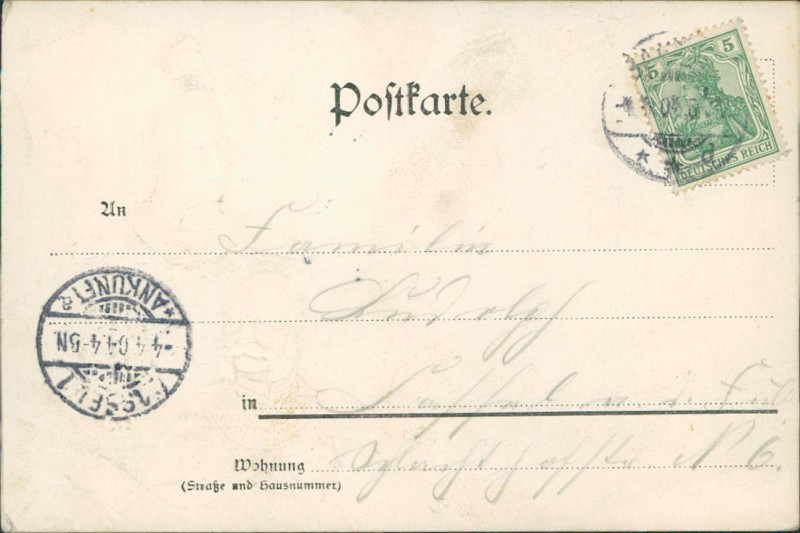 Postkarte.
5 5
DEUTSCHES REICH
An Familie
Rudolph
ANKUNFT
4.4.04.4-5N.
CASSEL 1
in Cassel
Wohnung Schlachthofstr. N 6.
(Straße und Hausnummer)